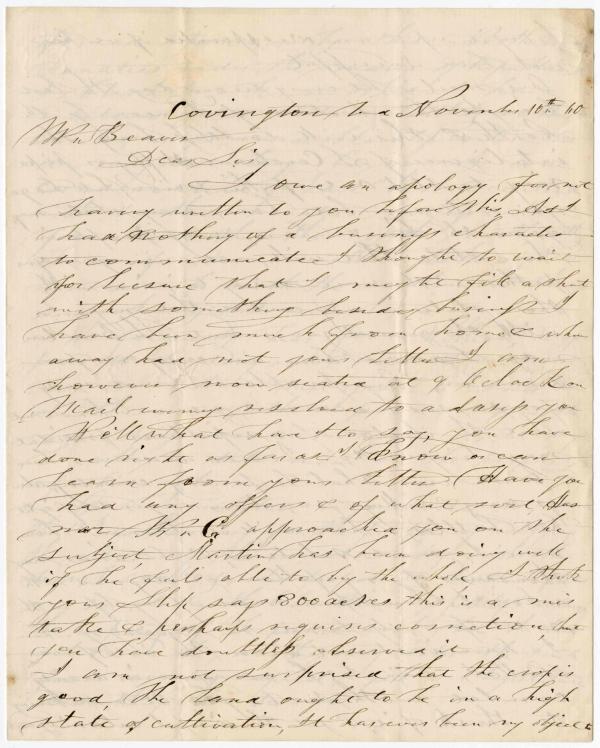 Covington La November 10th 60
Wm Beaver
Dear Sir,
I owe an apology for not
having written to you before this. As I
had nothing of a business character
to communicate I thought to wait
for leisure that I might fill a sheet
with something besides business I
have been much from home & when
away had not your letter I am
however now seated at 9 Oclock on
Mail evening resolved to adress you
Well what have I to say, you have
done right as far as I know or can
learn from your letter. Have you
had any offers & of what sort Has
not Wm C. approached you on the
subject, Martin has been doing well
if he feels able to by the whole I think
your slip says 800 acres this is a mis
take & perhaps requires correction, but
you have doubtless observed it
I am not surprised that the crop is
good, the land ought to be in a high
state of cultivation, It has ever been my object to